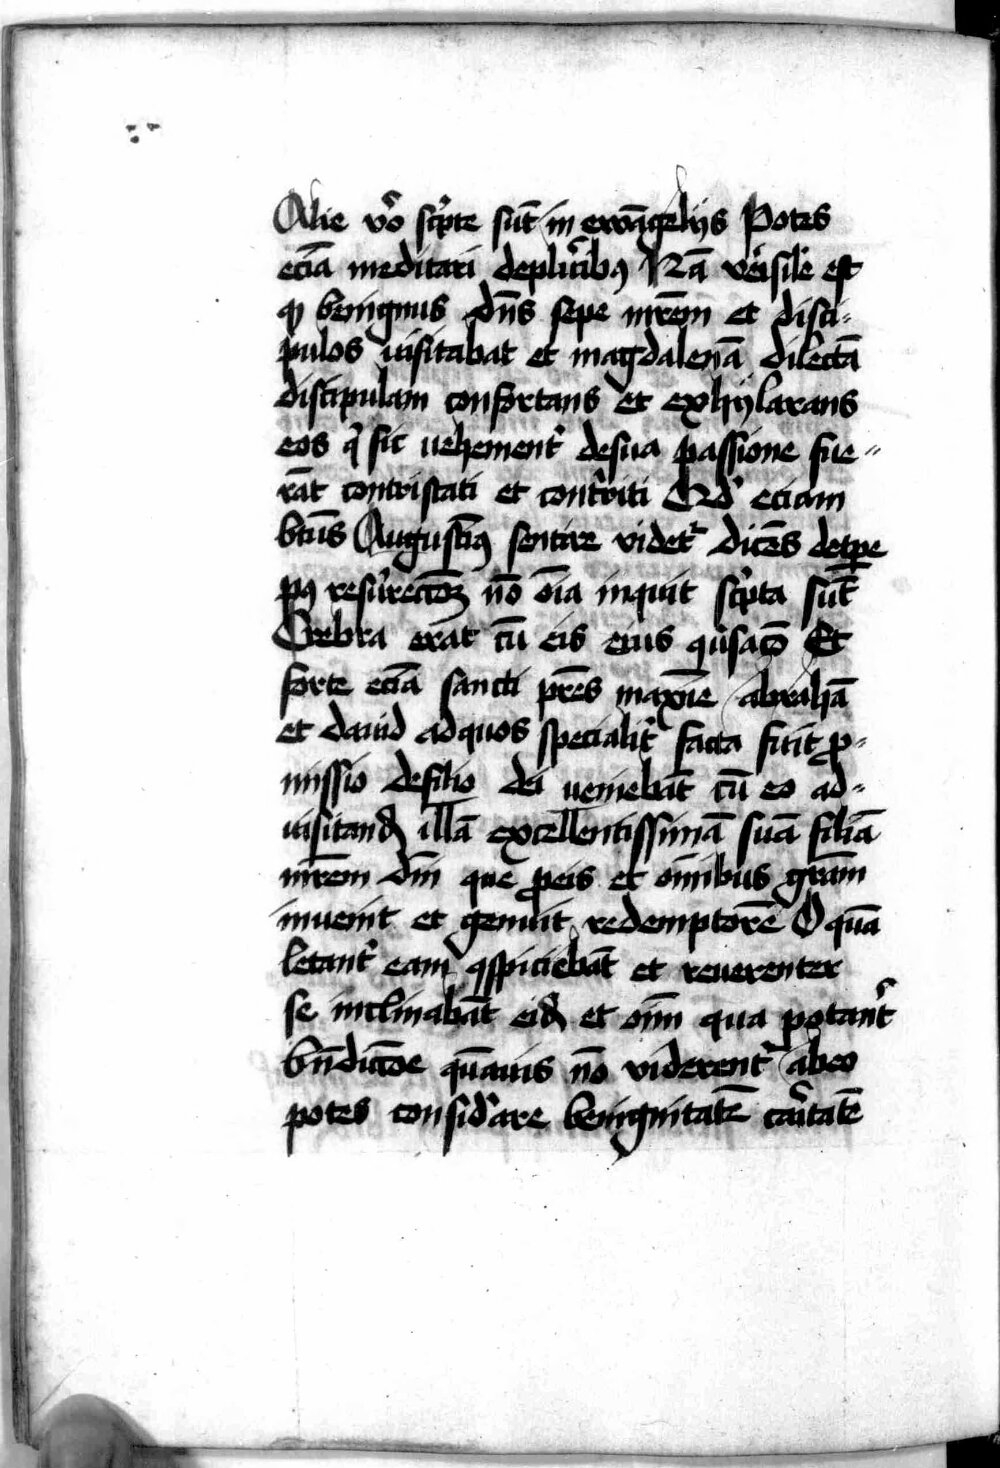 Alie vͦo sc͛pte sūt in ewāgelijs Potes
eciā meditari deplurıͨbꝰ Nā veͥsil̛e est
ꝙ benignus dn̄s sepe mr̄em et disci-
pulos uisitabat et magdalenā dilectā
discipulam confortans et exhÿlarans
eos qͥ sic uehement͛ desua passione fue-
rāt contristati et cont͛riti Qd̛ eciam
btūs Augustīꝰ sentire videt͛ dicēs detpe
pꝰ resurrectōꝫ nō oīa inquit sc͛pta sūt
Crebra erāt cū eis eius ꝯu͛sacō Et
forte eciā sancti pr̄es maxīe abrahā
et dauid adquos specialit͛ facta fuit ꝓ-
missio defilio dei ueniebāt cū eo ad-
uisitand̛ illā excellentissimā suā filiā
mr̄em dn̄i que ꝓeis et om̄ibus gr̄am
inuenit et genuit redemptorē O quā
letant͛ eam ꝯspiciebāt et reuerenter
se inclinabāt eid̛ et om̄i qua poterant͛
bn̄dictōe quāuis nō viderent͛ abeo
potes consid͛are benignitatē caritatē